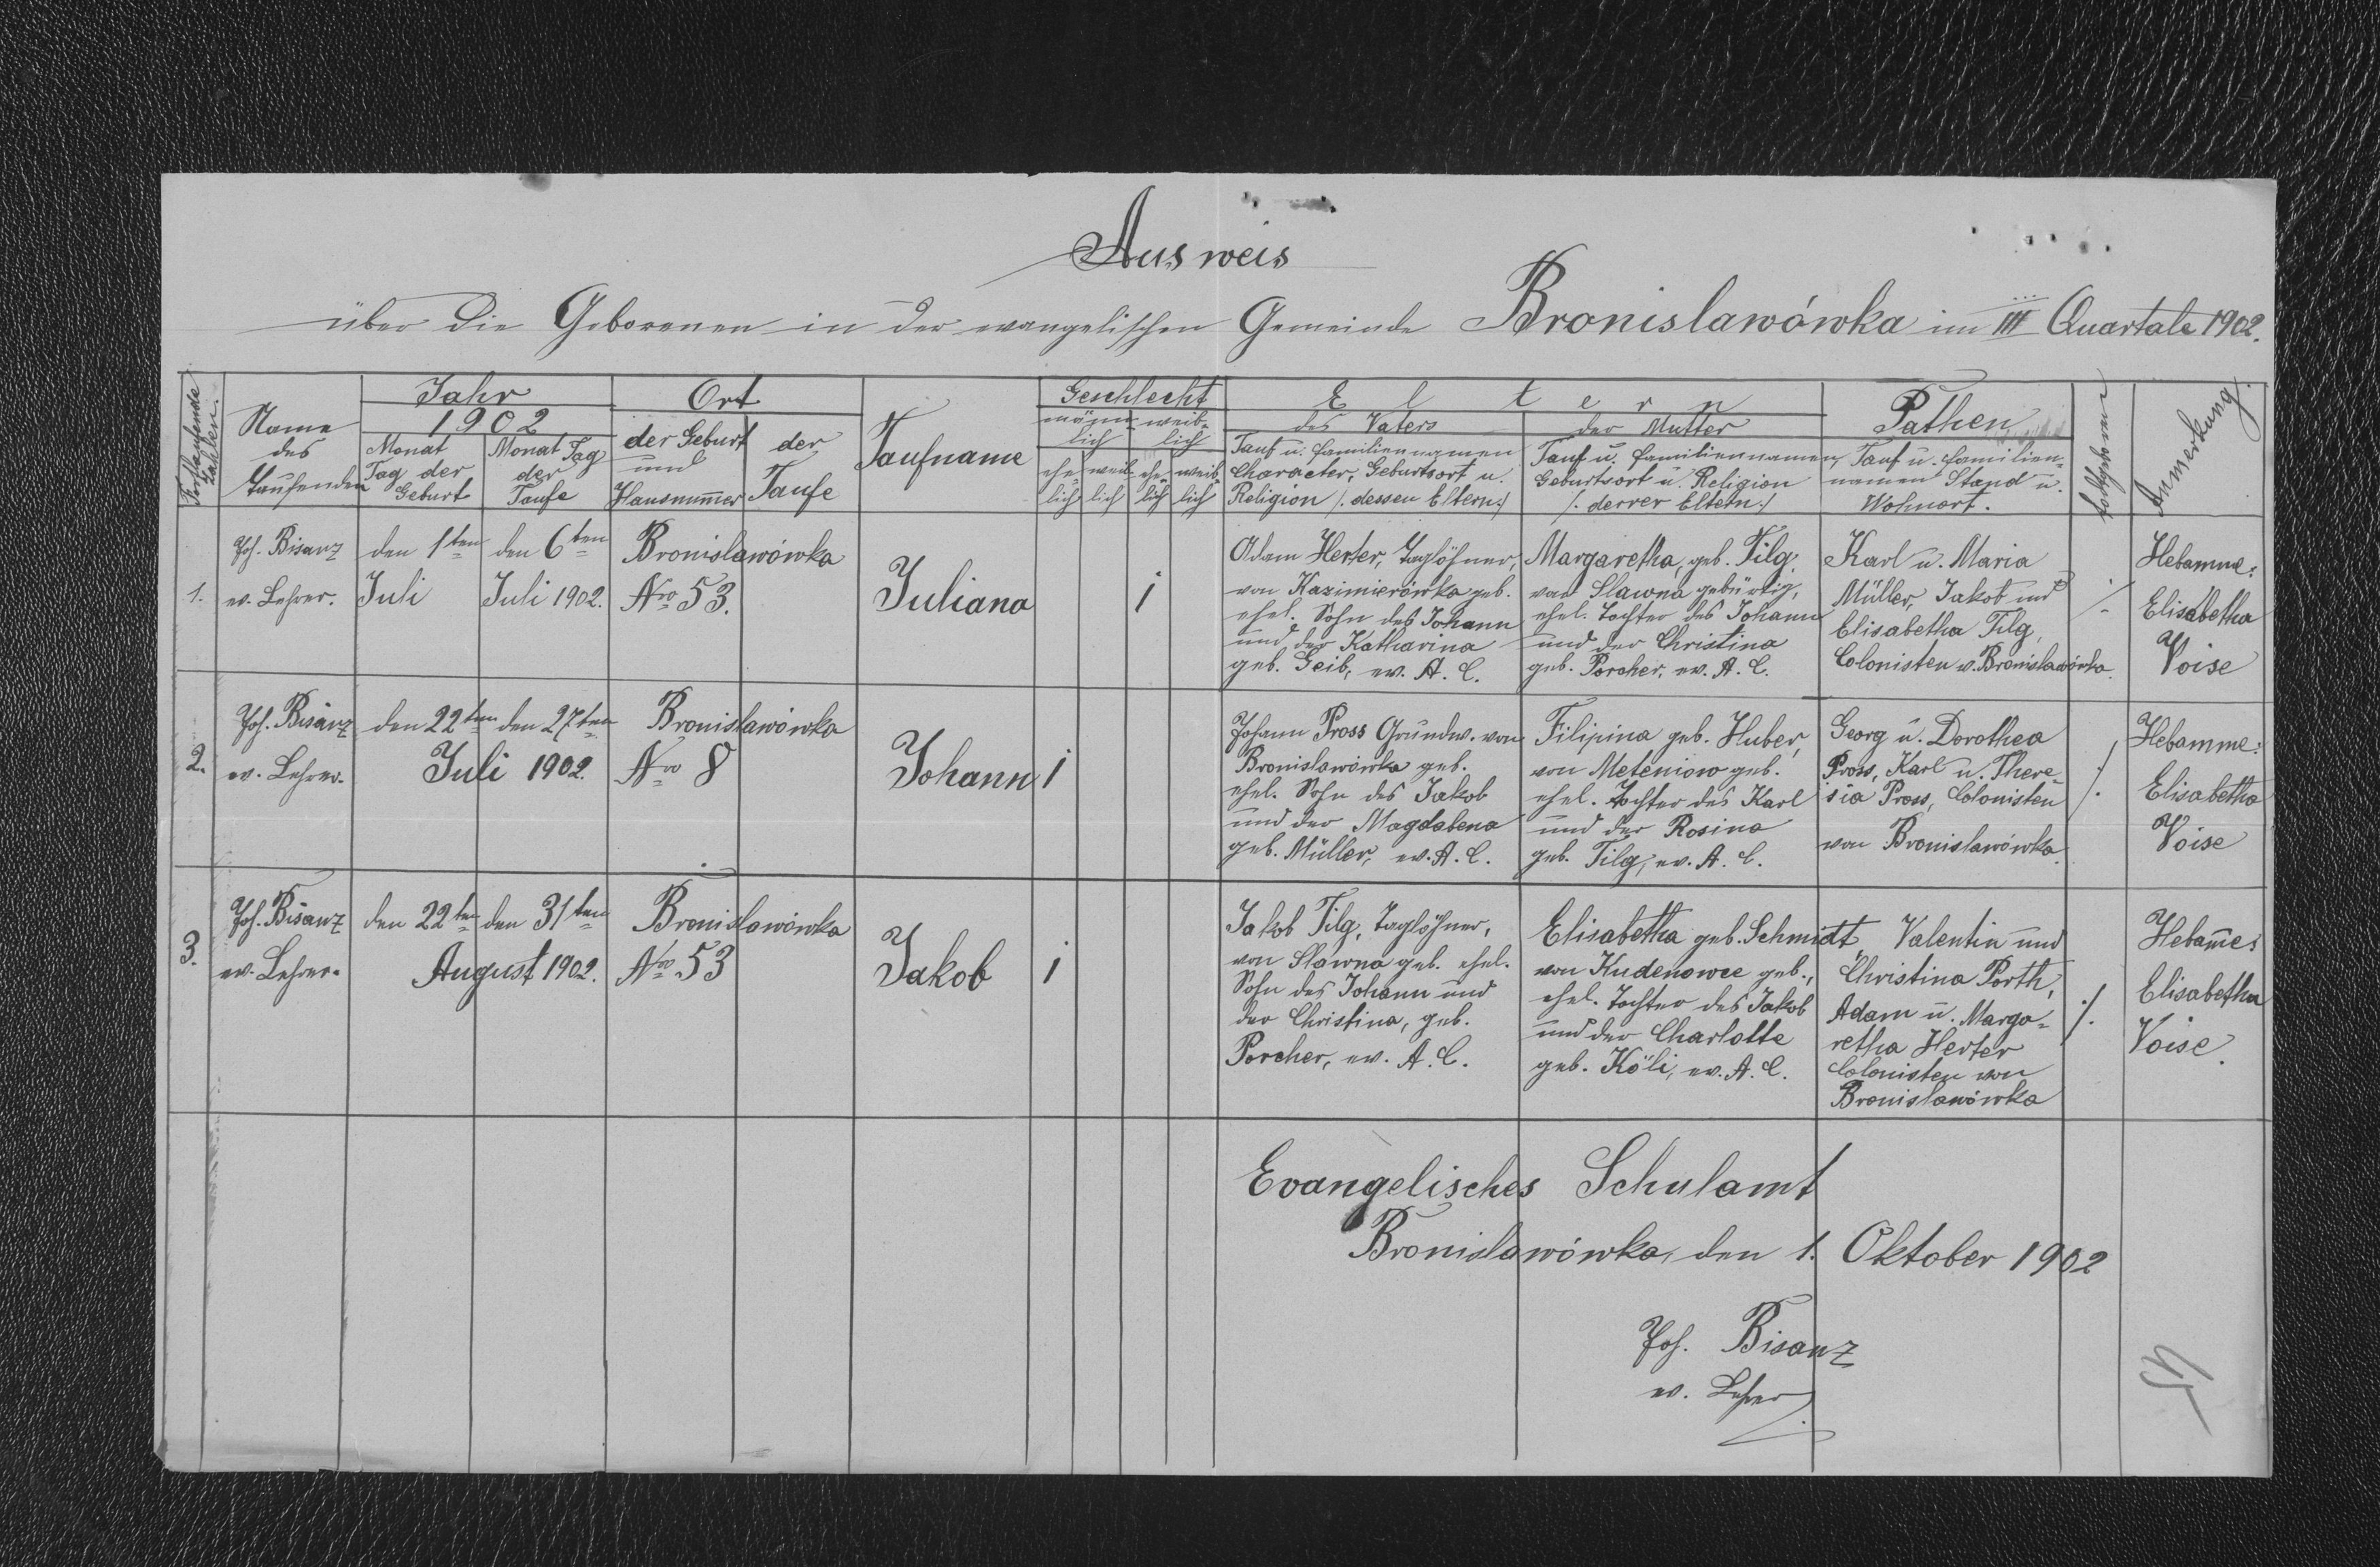 Ausweis
über die Geborenen in der evangelischen Gemeinde Bronislawówka im III Quartale 1902.
Fortlaufende Zahlen.
Name
des
Taufenden
Jahr
1902
Monat
Tag der
Geburt
Monat Tag
der
Taufe
Ort
der Geburt
und
Hausnummer
der
Taufe
Taufname
Geschlecht
männ-
lich
weib-
lich
ehe-
lich
ehe-
lich
Eltern
des Vaters
Tauf u. familiennamen
Character, Geburtsort, u.
Religion /. dessen Eltern./
der Mutter
Tauf u. familiennamen,
Geburtsort u. Religion
/. derrer Eltern./
Pathen
Tauf u. familien-
namen Stand u.
Wohnort.
todtgeborene
Anmerkung.
1.
Joh. Bisanz
ev. Lehrer.
den 1ten
Juli
den 6ten
Juli 1902.
Bronislawówka
Nro 53.
Juliana
1
Adam Herter, Taglöhner,
von Kazimierówka geb.
ehel. Sohn des Johann
und der Katharina
geb. Geib, ev. A. C.
Margaretha, geb. Tilg,
von Slawna gebürtig,
ehel. Tochter des Johann
und der Christina
geb. Porcher, ev. A. C.
Karl u. Maria
Müller, Jakob und
Elisabetha Tilg,
Colonisten v. Bronislawówka.
/.
Hebamme:
Elisabetha
Voise
2.
Joh. Bisanz
ev. Lehrer.
den 22ten den 27ten
Juli 1902.
Bronislawówka
Nro 8
Johann
1
Johann Pross Grundw. von
Bronislawówka geb.
ehel. Sohn des Jakob
und der Magdalena
geb. Müller, ev. A. C.
Filipina geb. Huber,
von Meteniow geb.
ehel. Tochter des Karl
und der Rosina
geb. Tilg, ev. A. C.
Georg u. Dorothea
Pross, Karl u. There-
sia Pross, Colonisten
von Bronislawówka.
/.
Hebamme:
Elisabetha
Voise
3.
Joh. Bisanz
ev. Lehrer.
den 22ten den 31ten
August 1902.
Bronislawówka
Nro 53
Jakob
1
Jakob Tilg, Taglöhner,
von Slawna geb. ehel.
Sohn des Johann und
der Christina, geb.
Porcher, ev. A. C.
Elisabetha geb. Schmidt,
von Kudenowce geb.,
ehel. Tochter des Jakob
und der Charlotte
geb. Köli, ev. A. C.
Valentin und
Christina Porth,
Adam u. Marga-
retha Herter
Colonisten von
Bronislawówka
/.
Hebamme:
Elisabetha
Voise.
Evangelisches Schulamt
Bronislawówka, den 1. Oktober 1902
Joh. Bisanz
ev. Lehrer